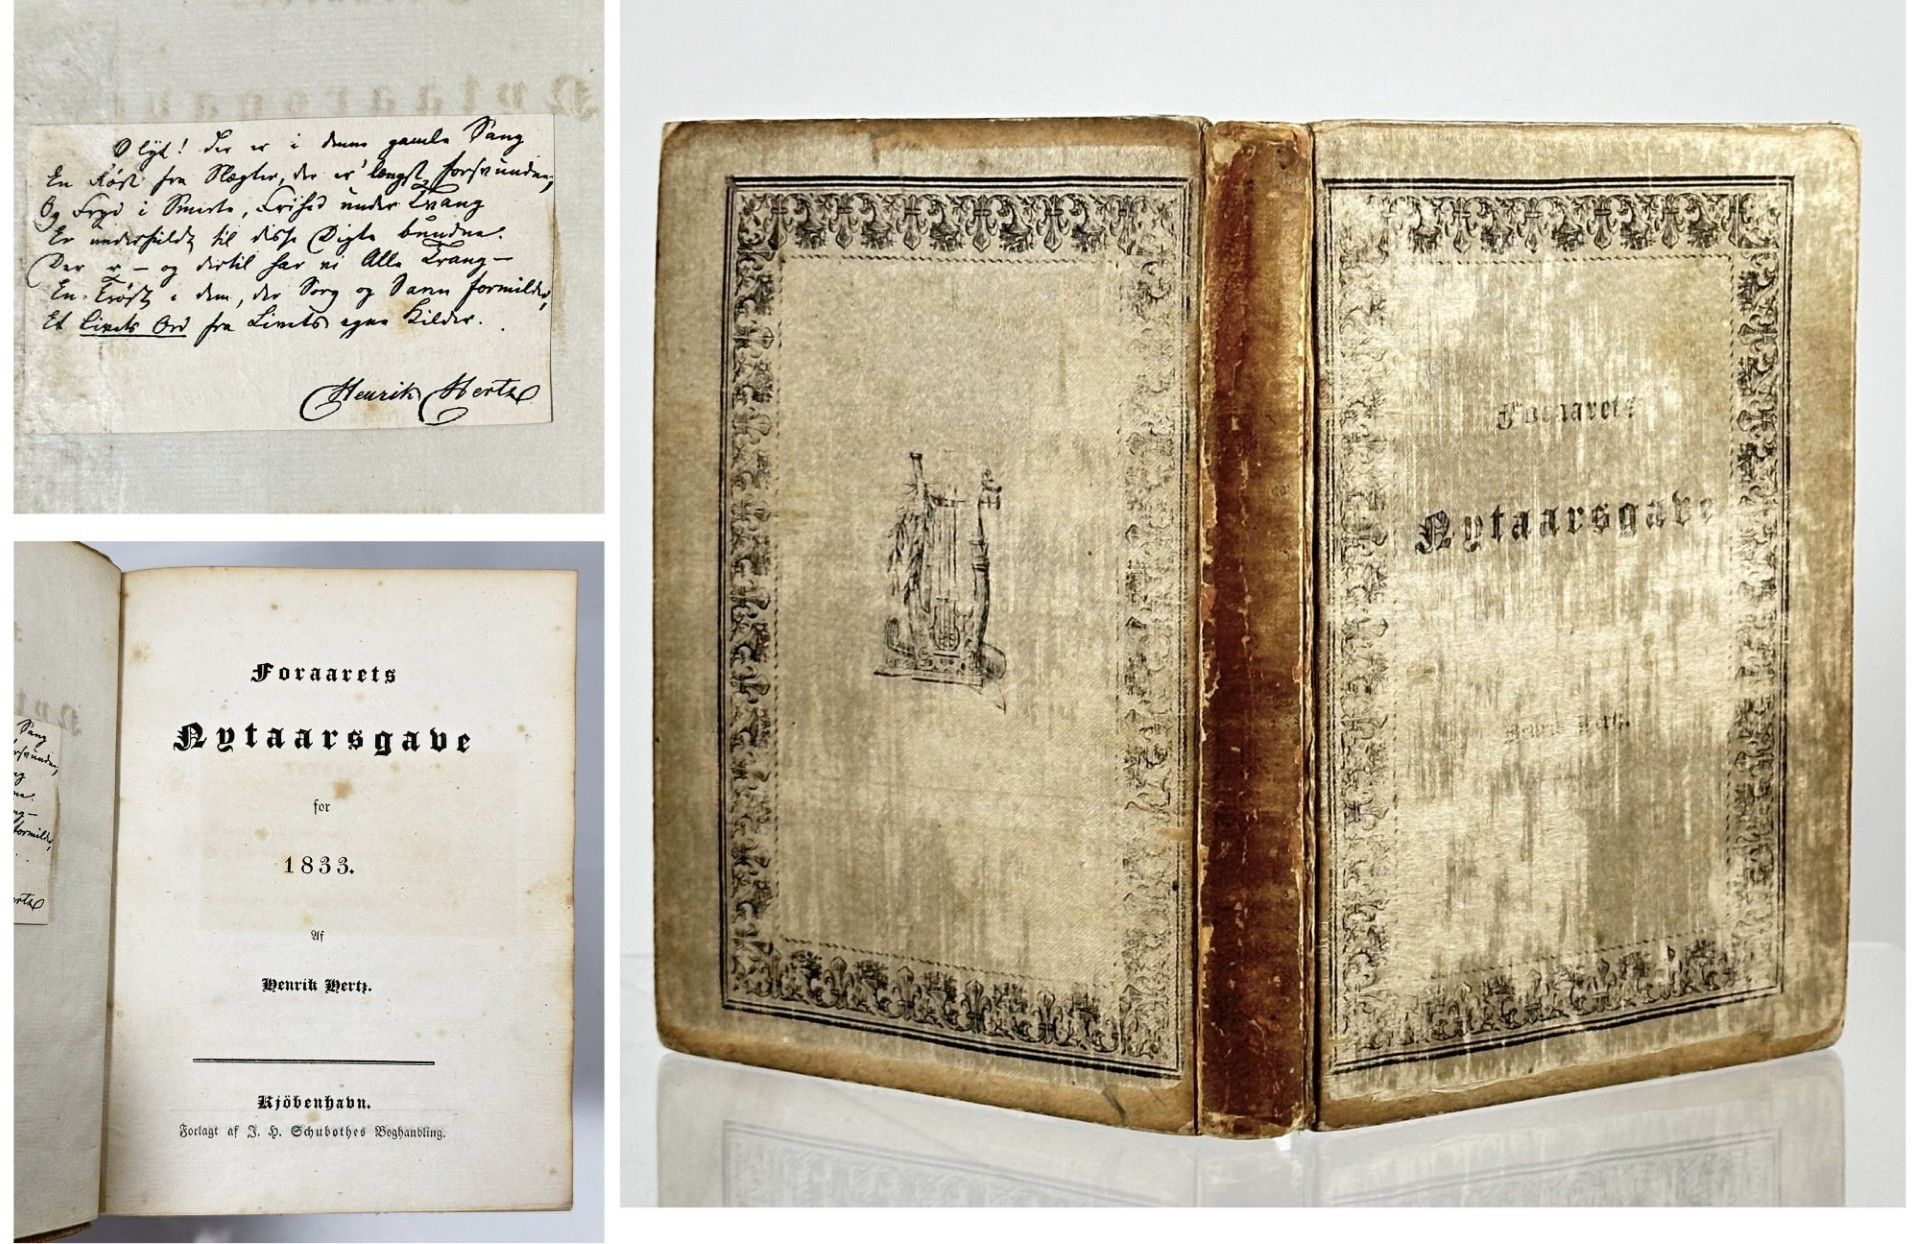 O lyt! Der er i denne gamle Sang
En Røst fra Slægter, der er længst forsvunden,
Og Fryd i Smerte, Frihed under Tvang
Er underfuldt til disse Digte bunden.
Der er — og dertil har vi Alle Trang —
En Trøst i dem, der Sorg og Savn formilder,
Et Livets Ord fra Livets egne Kilder.
Henrik Hertz
Foraarets
Nytaarsgave
for
1833.
Af
Henrik Hertz.
Kjöbenhavn.
Forlagt af J. H. Schubothes Boghandling.
Foraarets
Nytaarsgave
Henrik Hertz.